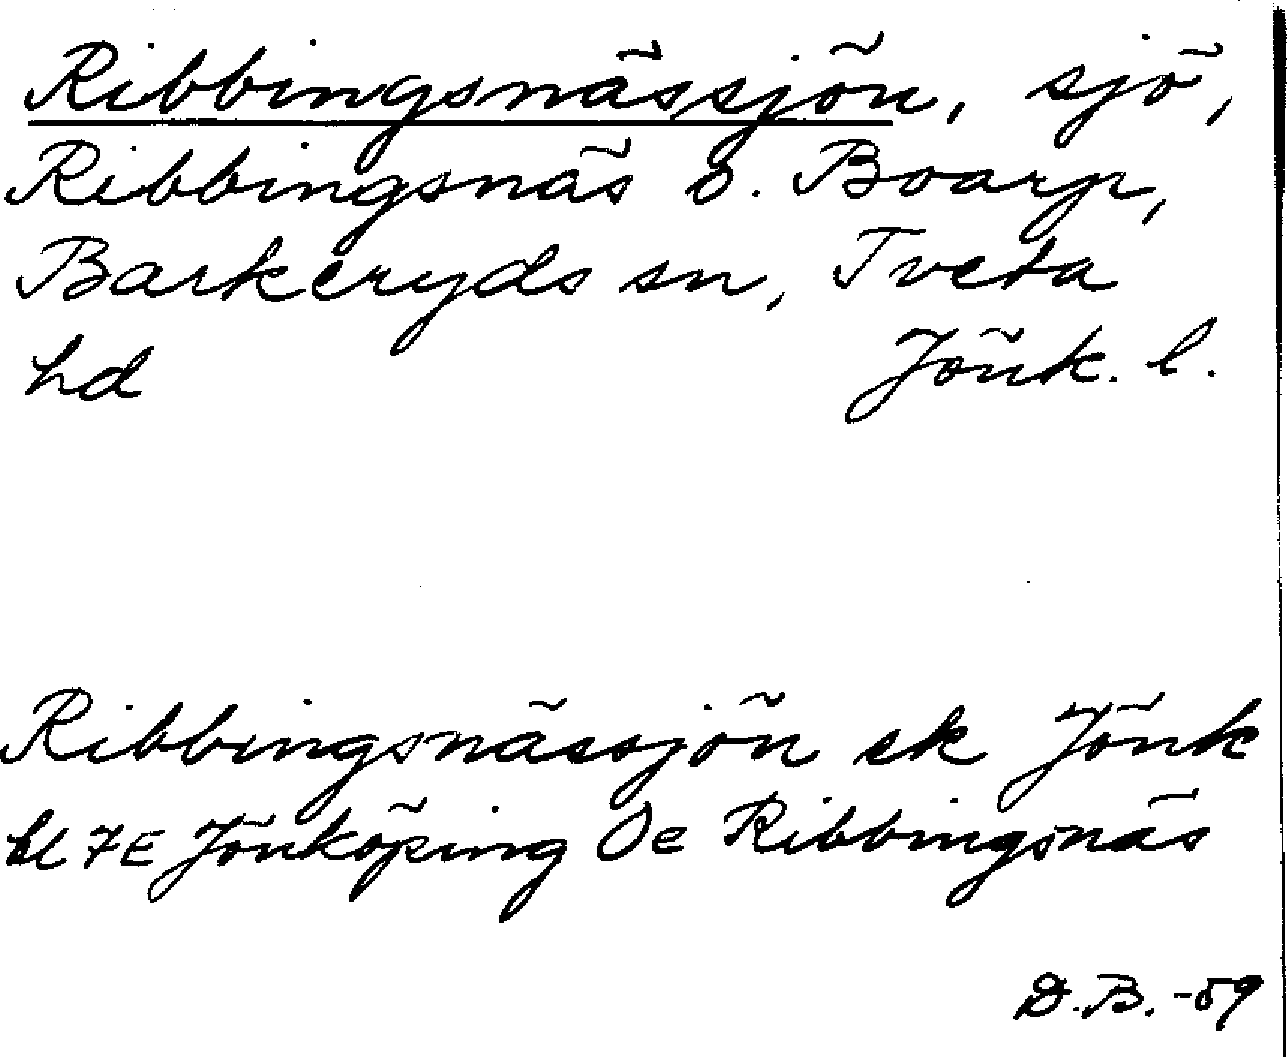 Ribbingsnässjön, sjö,
Ribbingsnäs o. Boarp,
Barkeryds sn, Tveta
hd Jönk. l.
Ribbingsnässjön ek Jönk
bl 7E Jönköping 0e Ribbingsnäs
D.B. -59